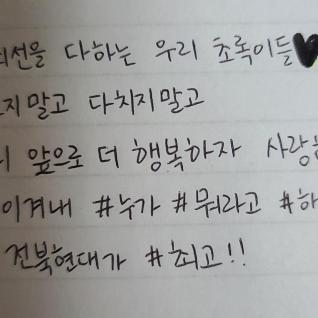 최선을 다하는 우리 초록이들♥
지말고 다치지말고
앞으로 더 행복하자
이겨내 #누가 #뭐라고
전북현대가 #최고!!